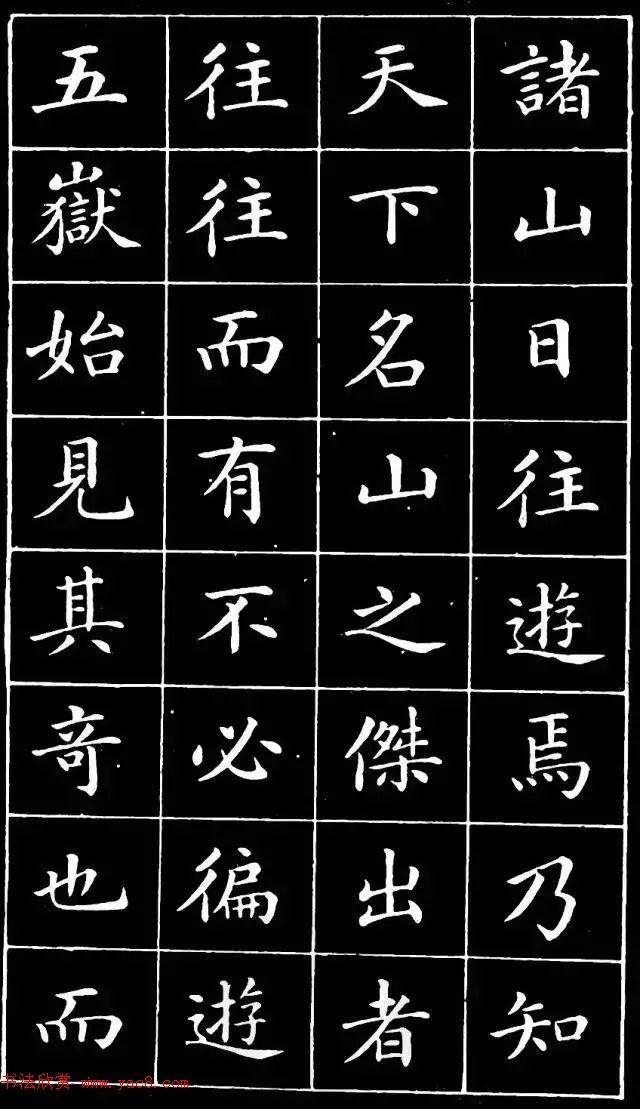 諸山日往遊焉乃知
天下名山之傑出者
往往而有不必徧遊
五嶽始見其奇也而
书法欣赏 www.yac8.com